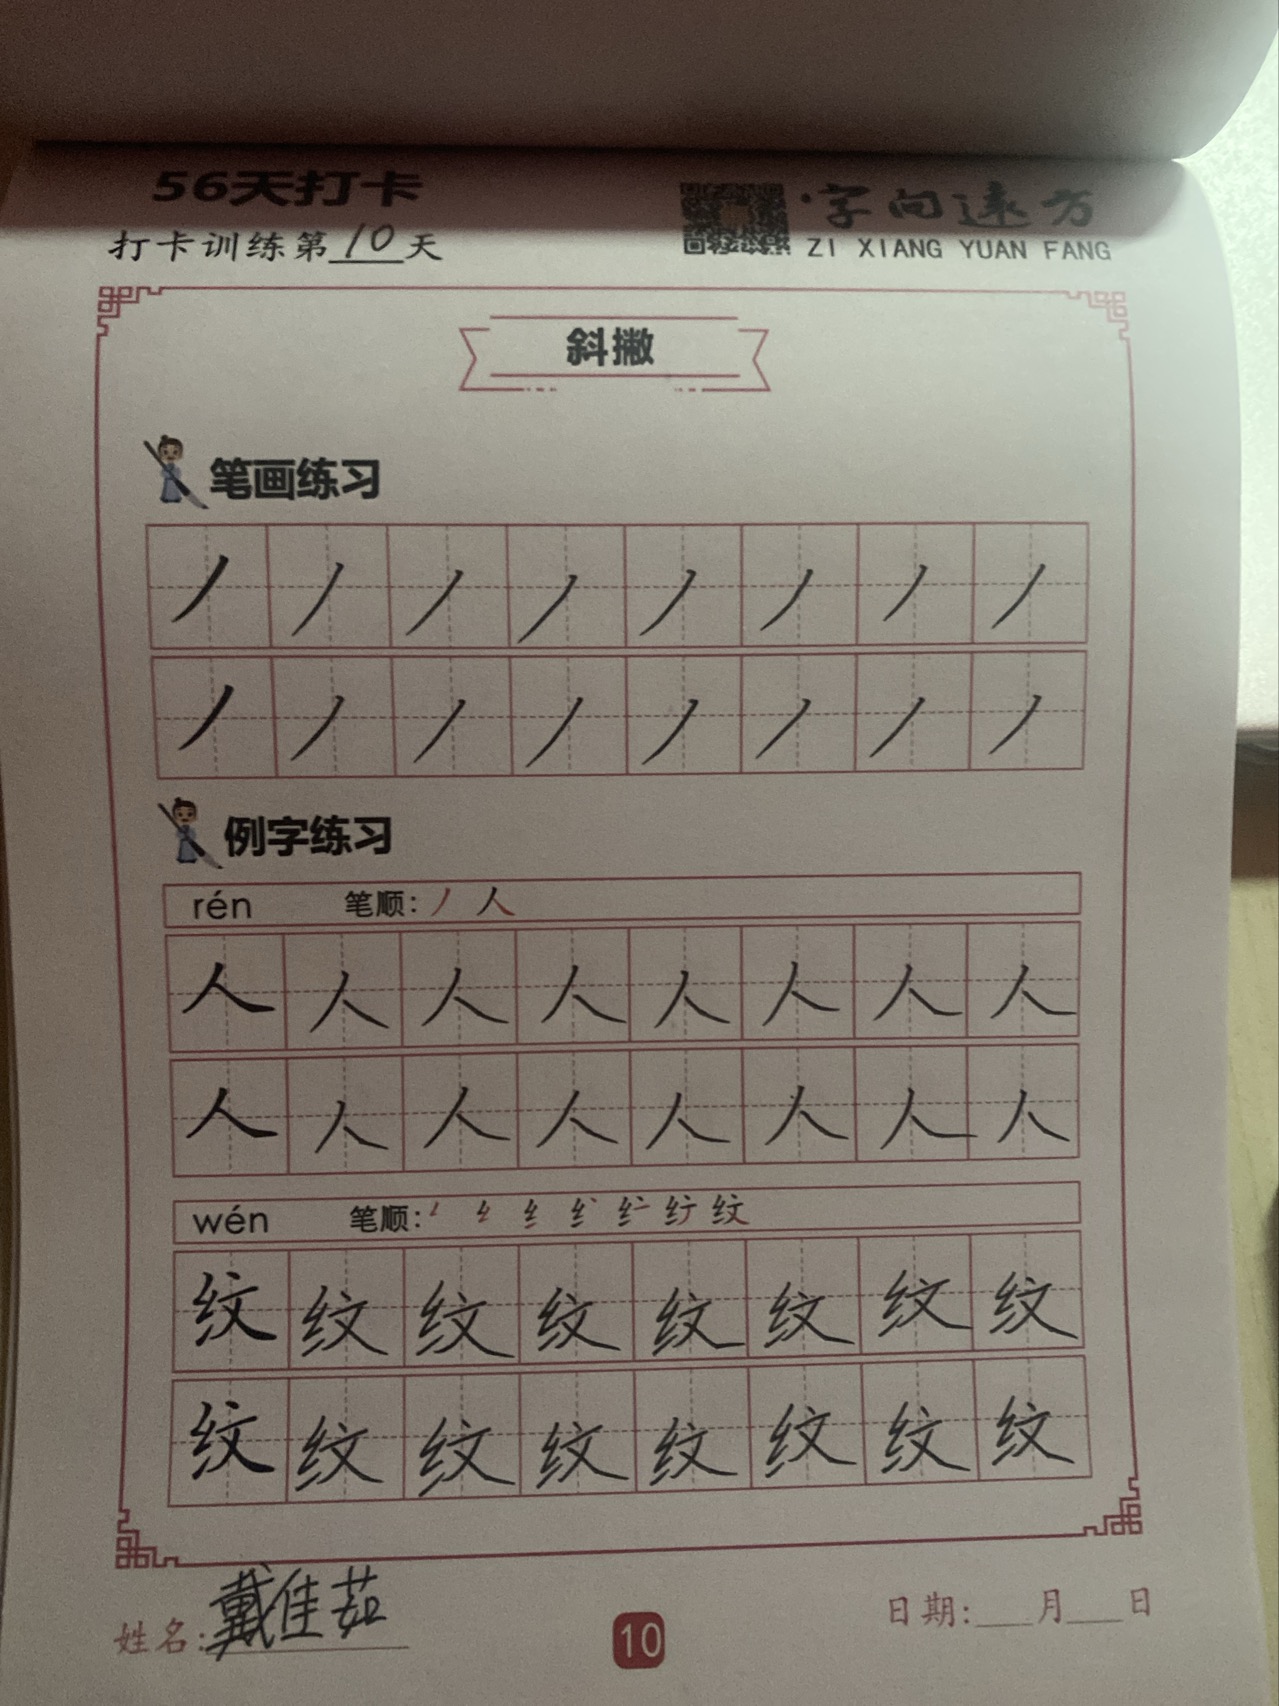 56天打卡
打卡训练第10天
字向远方
ZI XIANG YUAN FANG
斜撇
笔画练习
丿丿丿丿丿丿丿丿
丿丿丿丿丿丿丿丿
例字练习
rén 笔顺：丿 人
人人人人人人人人
人人人人人人人人
wén 笔顺： 纹
纹纹纹纹纹纹纹纹
纹纹纹纹纹纹纹纹
姓名：戴佳茹
10
日期：___月___日